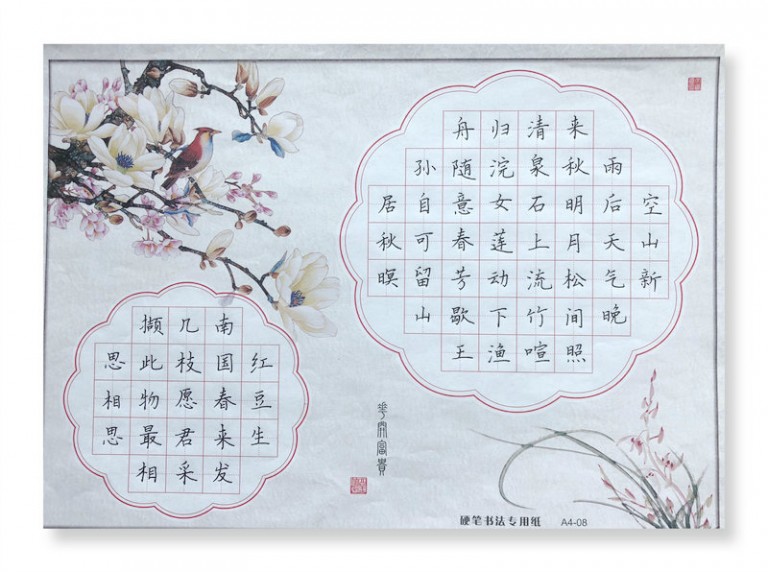 空山新
雨后天气晚
来秋明月松间照
清泉石上流竹喧
归浣女莲动下渔
舟随意春芳歇王
孙自可留山
居秋暝
红豆生
南国春来发
几枝愿君采
撷此物最相
思相思
花開富貴
硬笔书法专用纸 A4-08